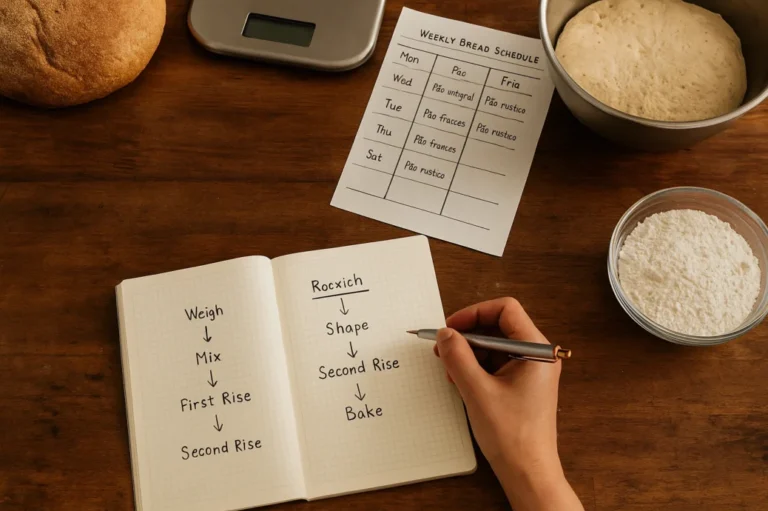 WEEKLY BREAD SCHEDULE
Mon Pão Fria
Wed Pão untgral Pão rustico
Tue Pão fracces Pão rustico
Thu Pão frances
Sat Pão rustico
Weigh
↓
Mix
↓
First Rise
↓
Second Rise
Rocxich
↓
Shape
↓
Second Rise
↓
Bake